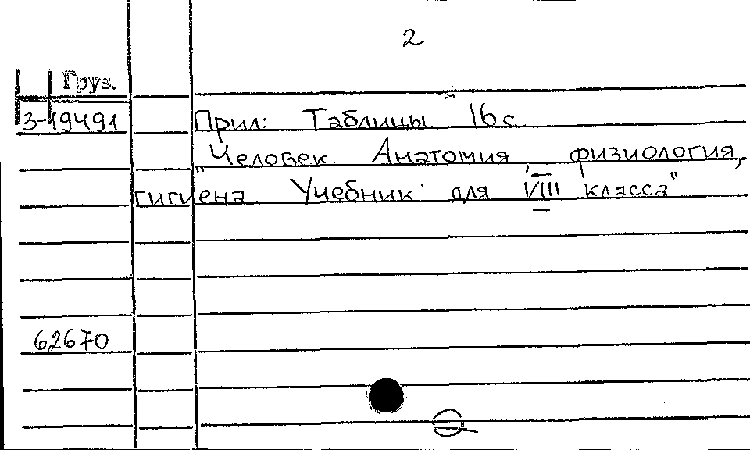 2
Груз.
3-19491
Прил: Таблицы 16с
"Человек Анатомия, физиология,
гигиена Учебник для VIII класса"
62670